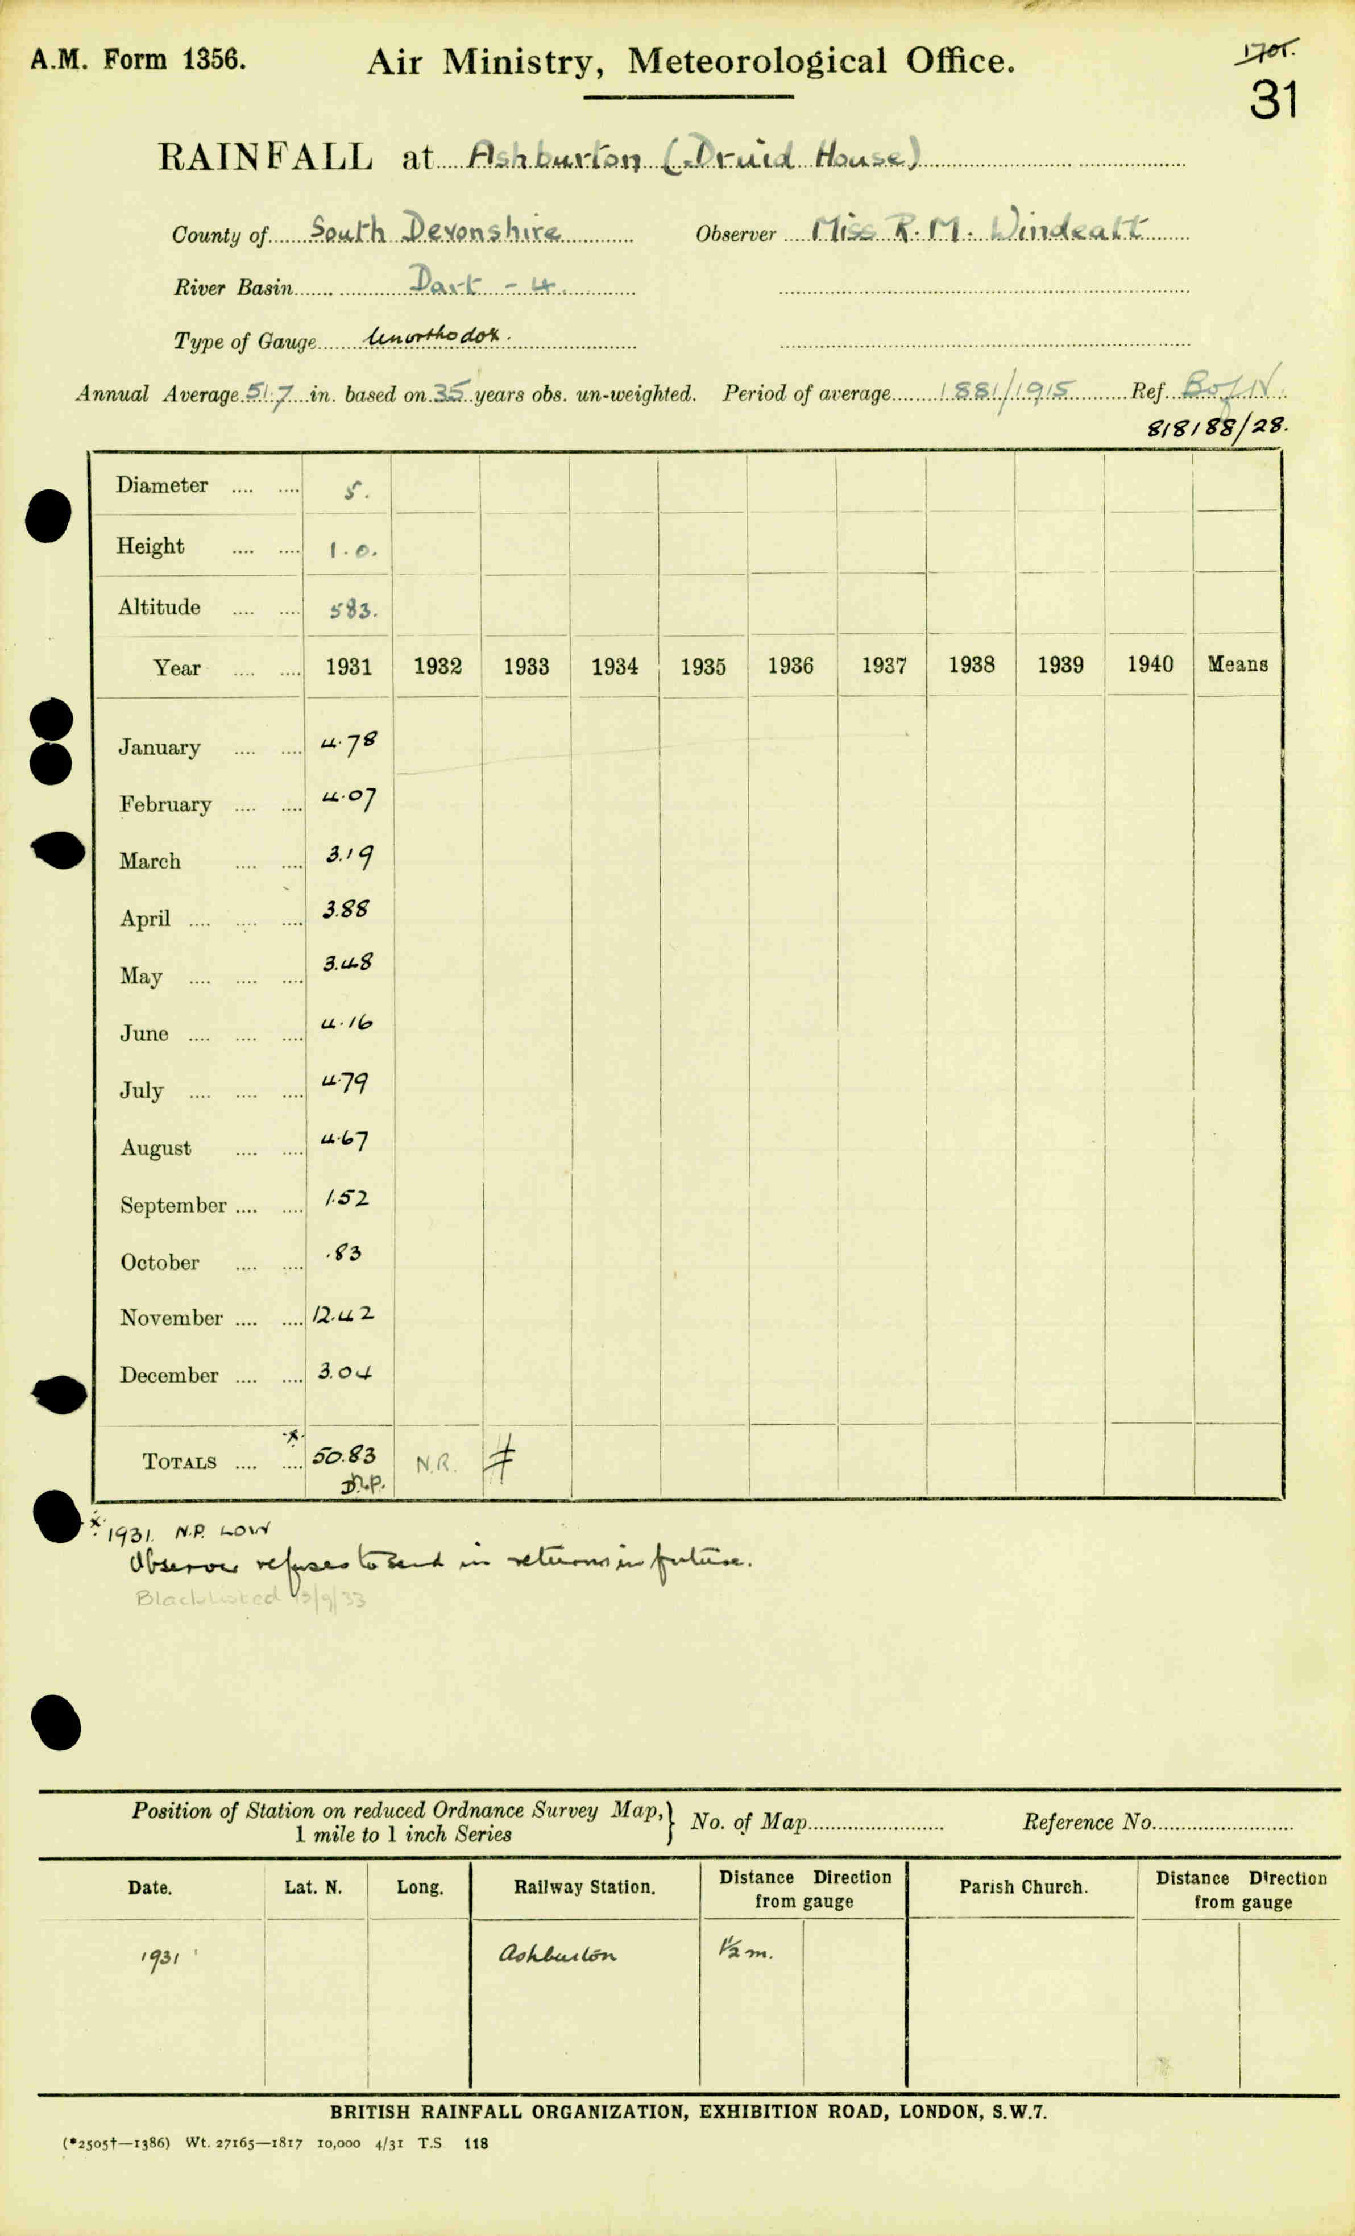 A.M. Form 1356. Air Ministry, Meteorological Office. 1705.
31
RAINFALL at Ashburton (Druid House)
County of South Devonshire Observer Miss R. M. Windeatt
River Basin Dart - 4
Type of Gauge Unorthodox.
Annual Average 51.7 in. based on 35 years obs. un-weighted. Period of average 1881/1915 Ref. B of N.
818188/28.
Diameter .... .... 5.
Height .... .... 1.0.
Altitude .... .... 583.
Year .... .... 1931 1932 1933 1934 1935 1936 1937 1938 1939 1940 Means
January .... .... 4.78
February .... .... 4.07
March .... .... 3.19
April .... .... .... 3.88
May .... .... .... 3.48
June .... .... .... 4.16
July .... .... .... 4.79
August .... .... 4.67
September .... .... 1.52
October .... .... .83
November .... .... 12.42
December .... .... 3.04
TOTALS .... .... * 50.83 N.R. ≠
N.P.
* 1931. N.P. LOW
Observer refuses to send in returns in future.
Blacklisted 13/9/33
Position of Station on reduced Ordnance Survey Map, } No. of Map Reference No.
1 mile to 1 inch Series
Date. Lat. N. Long. Railway Station. Distance Direction from gauge Parish Church. Distance Direction from gauge
1931 Ashburton ½ m.
BRITISH RAINFALL ORGANIZATION, EXHIBITION ROAD, LONDON, S.W.7.
(*2505†—1386) Wt. 27165—1817 10,000 4/31 T.S 118